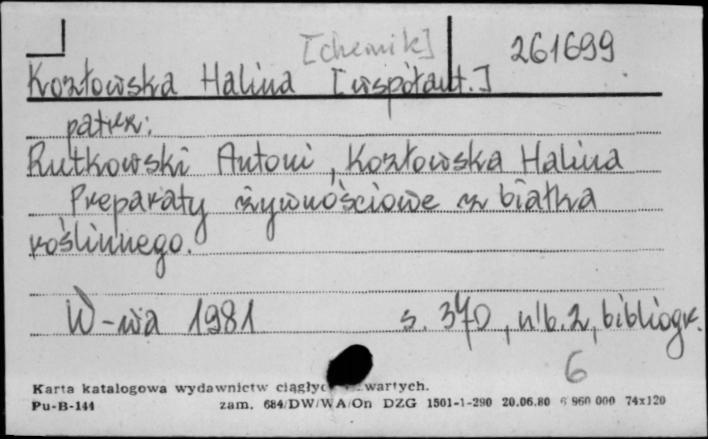 [chemik] 261699
Kozłowska Halina [współaut.]
patrz:
Rutkowski Antoni, Kozłowska Halina
Preparaty żywnościowe z białka
roślinnego.
W-wa 1981 s. 370, nlb. 2, bibliogr.
6
Karta katalogowa wydawnictw ciągłyc wartych.
Pu-B-144 zam. 684/DW/WA/On DZG 1501-1-290 20.06.80 6 960 000 74x120